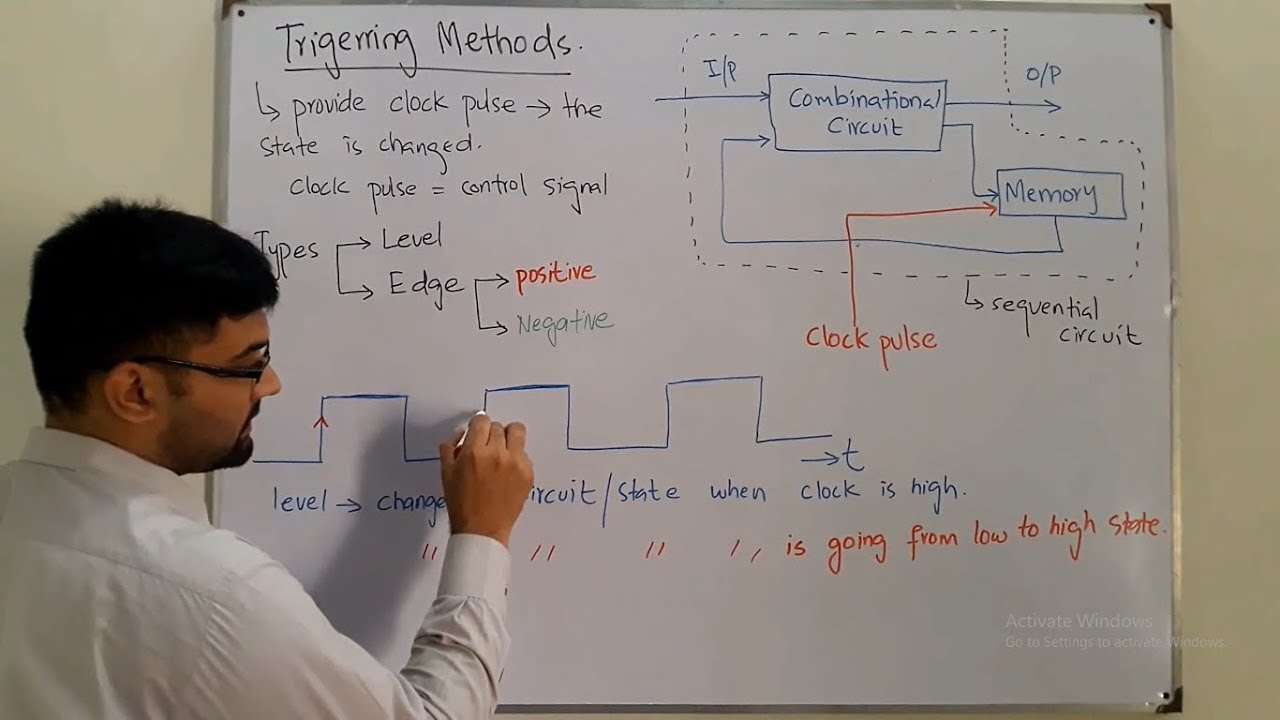 Trigerring Methods.
↳ provide clock pulse → the
state is changed.
Clock pulse = control signal
Types → Level
→ Edge → positive
→ Negative
I/P
O/P
Combinational
Circuit
Memory
Clock pulse
↳ sequential
circuit
→ t
level → change ircuit/state when clock is high.
" " " " is going from low to high state.
Activate Windows
Go to Settings to activate Windows.